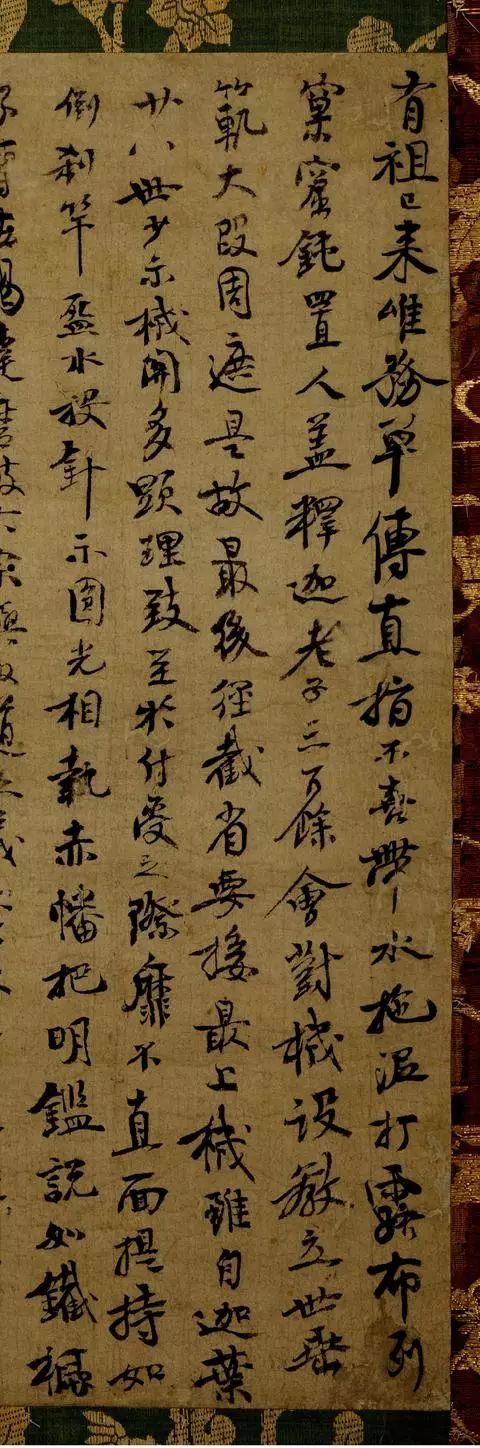 有祖已来唯務單傳直指不喜帶水拖泥打露布列
窠窟鈍置人蓋釋迦老子三百餘會對機設教立世垂
範大段周遮是故最後徑截省要接最上機雖自迦葉
廿八世少示機關多顯理致至於付受之際靡不直面提持如
倒刹竿盌水投針示圓光相執赤幡把明鑑説如鐵橛